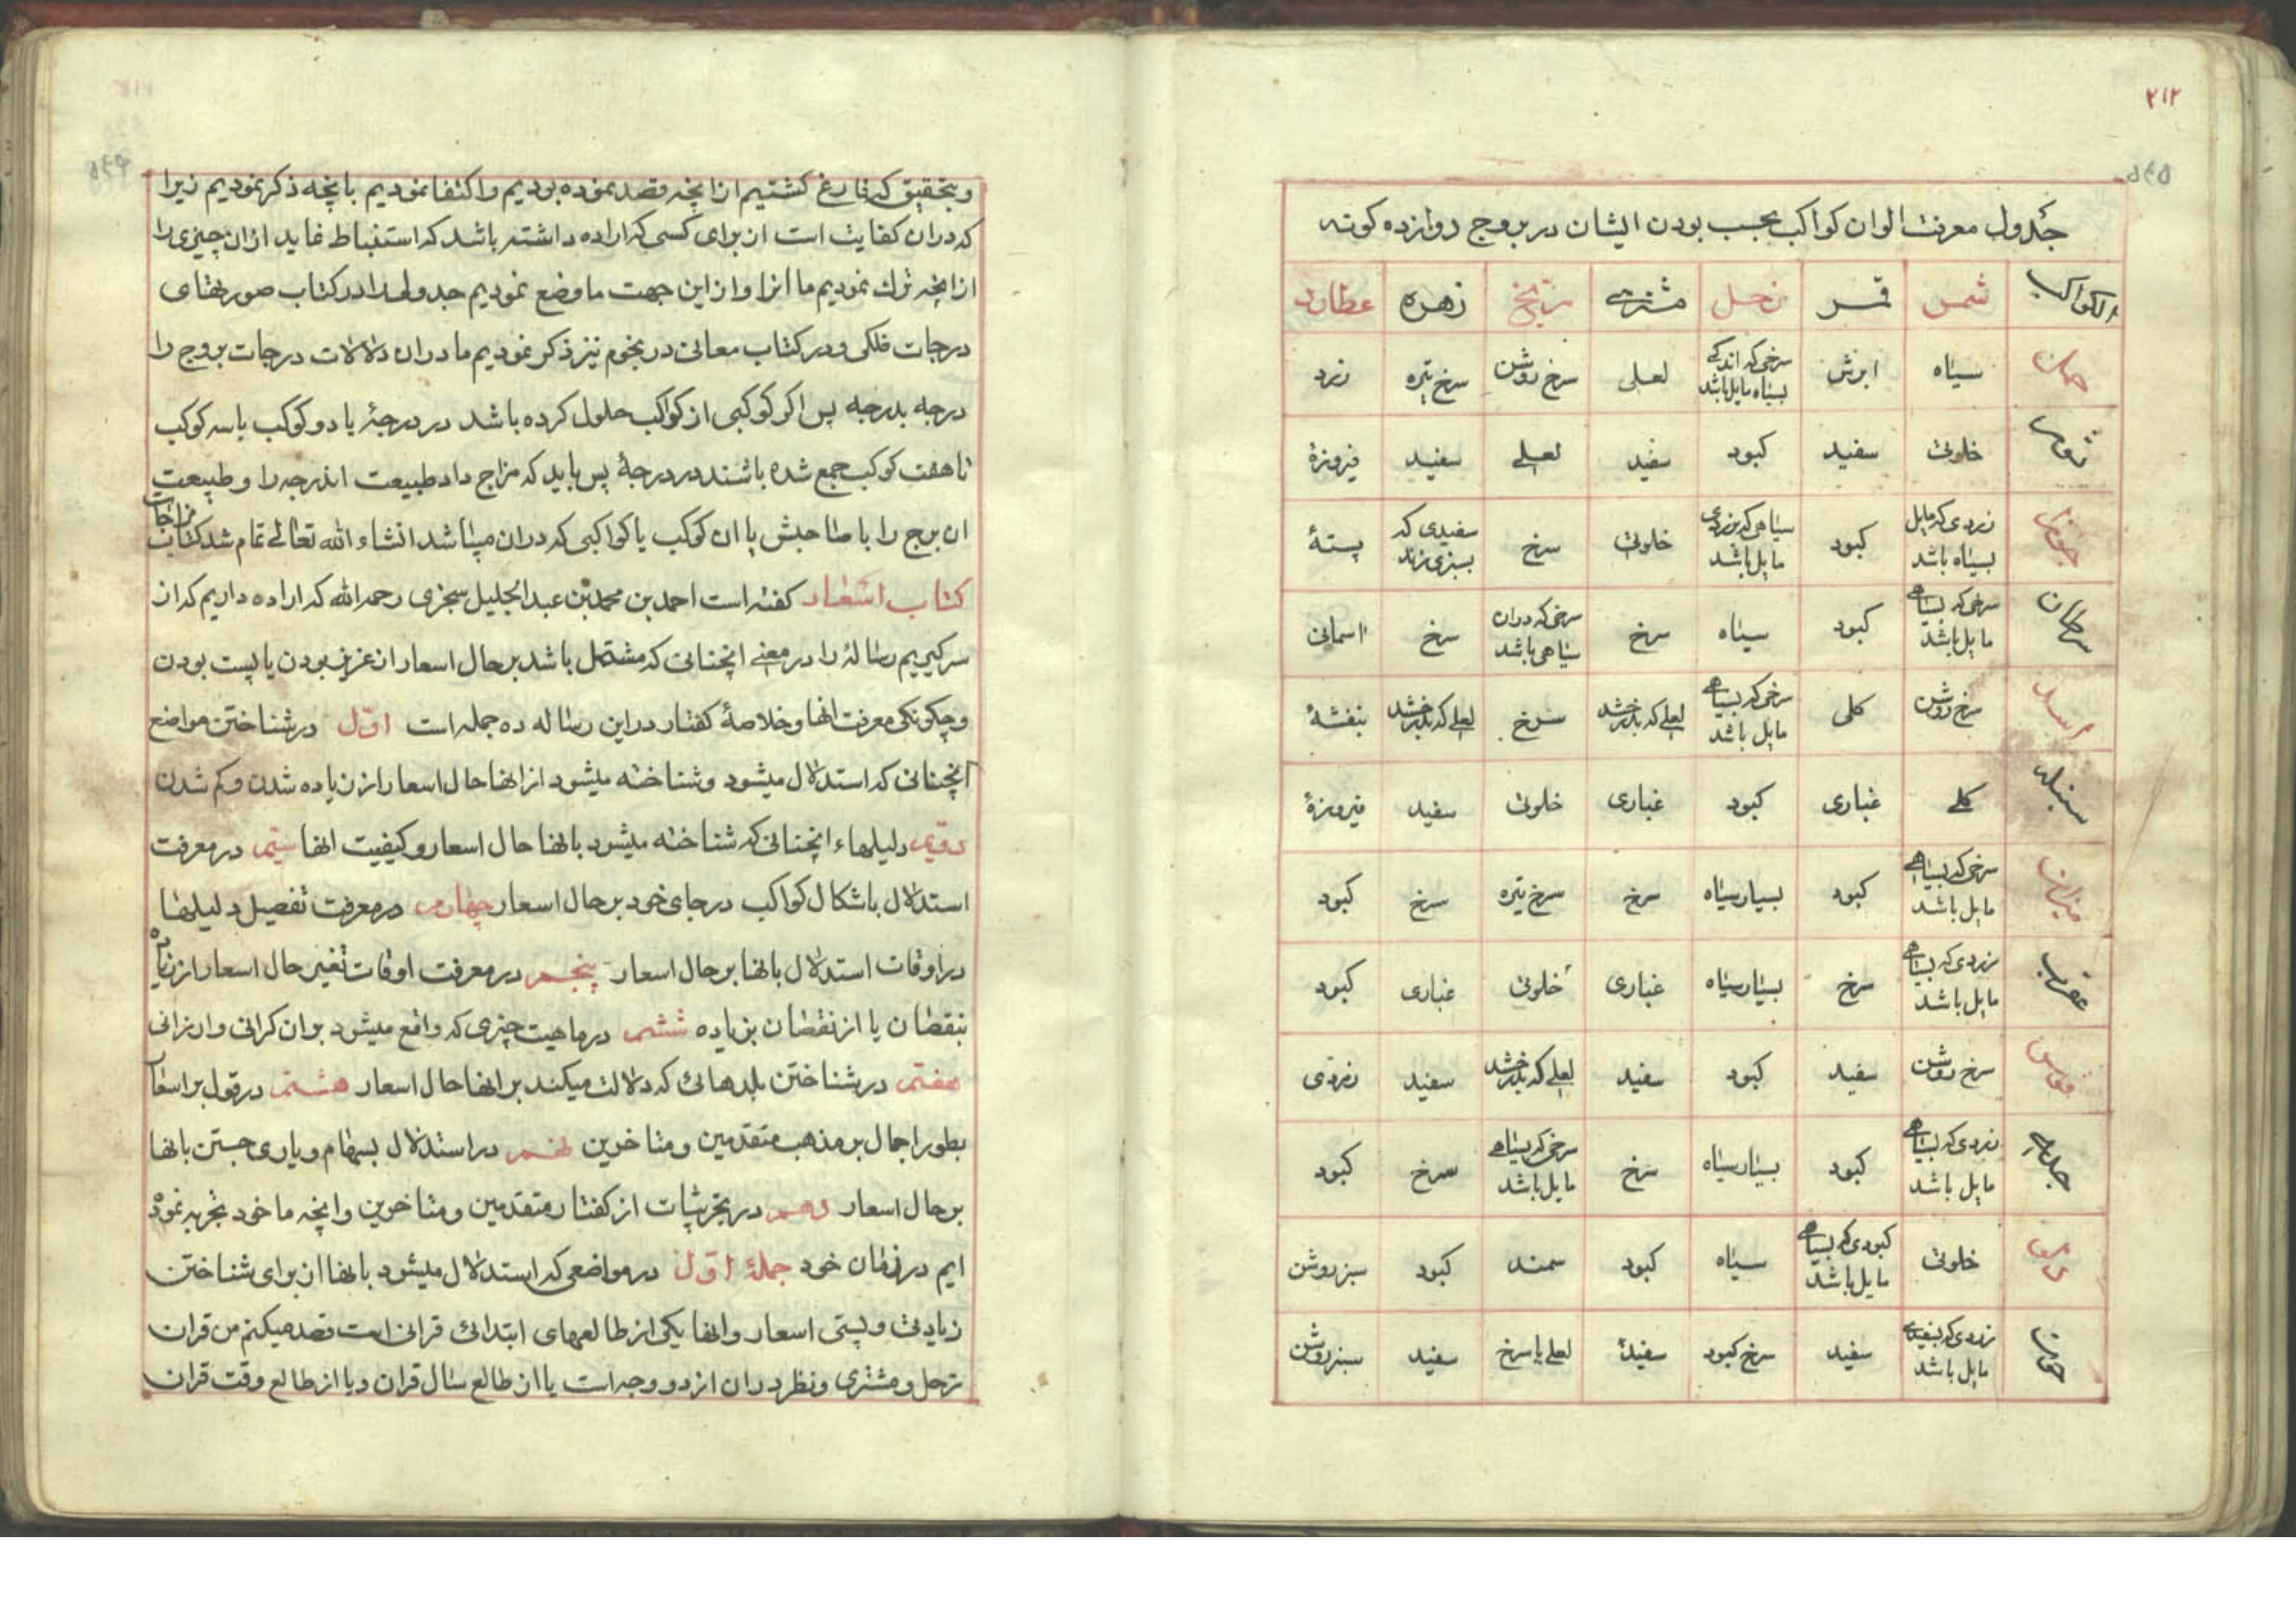 ۲۱۲
جدول معرفت الوان کواکب بحسب بودن ایشان در بروج دوازده کونه
الکواکب شمس قمر زحل مشتری مریخ زهره عطارد
حمل سیاه ابرش سرخی که اندکی بسیاه مایل باشد لعلی سرخ روشن سرخ تیره زرد
ثور خلوقی سفید کبود سفید لعلی سفید فیروزهٔ
جوزا زردی که مایل بسیاه باشد کبود سیاهی که بزردی مایل باشد خلوقی سرخ سفیدی که بسبزی زند پستهٔ
سرطان سرخی که بسیاهی مایل باشد کبود سیاه سرخ سرخی که دران سیاهی باشد سرخ اسمانی
اسد سرخ روشن کلی سرخی که بسیاهی مایل باشد لعلی که بدرخشد سرخ لعلی که بدرخشد بنفشهٔ
سنبله کلی غباری کبود غباری خلوقی سفید فیروزهٔ
میزان سرخی که بسیاهی مایل باشد کبود بسیار سیاه سرخ سرخ تیره سرخ کبود
عقرب زردی که بسیاهی مایل باشد سرخ بسیار سیاه غباری خلوقی غباری کبود
قوس سرخ روشن سفید کبود سفید لعلی که بدرخشد سفید زردی
جدی زردی که بسیاهی مایل باشد کبود بسیار سیاه سرخ سرخی که بسیاهی مایل باشد سرخ کبود
دلو خلوقی کبودی که بسیاهی مایل باشد سیاه کبود سمند کبود سبز روشن
حوت زردی که بسفیدی مایل باشد سفید سرخ کبود سفیدهٔ لعلی یا سرخ سفید سبز روشن
و بتحقیق که فارغ کشتیم از انچه قصد نموده بودیم و اکتفا نمودیم بانچه ذکر نمودیم زیرا
که دران کفایت است از برای کسی که اراده داشته باشد که استنباط نماید ازان چیزی را
از انچه ترک نمودیم ما انرا و از این جهت ما وضع نمودیم جدولی را در کتاب صورتهای
درجات فلکی و در کتاب معانی در نجوم نیز ذکر نمودیم ما دران دلالات درجات بروج را
درجه بدرجه پس اکر کوکبی از کواکب حلول کرده باشد در درجهٔ یا دو کوکب یا سه کوکب
تا هفت کوکب جمع شده باشند در درجهٔ پس باید که مزاج داد طبیعت اندرجه را و طبیعت
ان برج را با صاحبش با ان کوکب یا کواکبی که دران میباشد انشاء الله تعالی تمام شد کتاب مزاجات
کتاب اسعار کفته است احمد بن محمد بن عبد الجلیل سجزی رحمه الله که اراده داریم که از
سر کیریم رسالهٔ را در معنی انچنانی که مشتمل باشد بر حال اسعار از عزیز بودن یا پست بودن
و چکونکی معرفت انها و خلاصهٔ کفتار در این رساله ده جمله است اوّل در شناختن مواضع
انچنانی که استدلال میشود و شناخته میشود از انها حال اسعار از زیاده شدن و کم شدن
دویّم دلیلهاء انچنانی که شناخته میشود بانها حال اسعار و کیفیت انها سیّم در معرفت
استدلال باشکال کواکب در جای خود بر حال اسعار چهارم در معرفت تفصیل دلیلها
در اوقات استدلال بانها بر حال اسعار پنجم در معرفت اوقات تغیر حال اسعار از زیاده
بنقصان یا از نقصان بزیاده ششم در ماهیت چیزی که واقع میشود بران کرانی و ارزانی
هفتم در شناختن بلدهائی که دلالت میکند بر انها حال اسعار هشتم در قول بر اسعار
بطور اجمال بر مذهب متقدمین و متاخرین نهم در استدلال بسهام و یاری جستن بانها
بر حال اسعار دهم در تجربیات از کفتار متقدمین و متاخرین و انچه ما خود تجربه نموده
ایم در زمان خود جملهٔ اوّل در مواضعی که استدلال میشود بانها از برای شناختن
زیادتی و پستی اسعار و انها یکی از طالعهای ابتدائی قرانی است قصد میکنم من قران
زحل و مشتری و نظر دران از دو وجه است یا از طالع سال قران و یا از طالع وقت قران